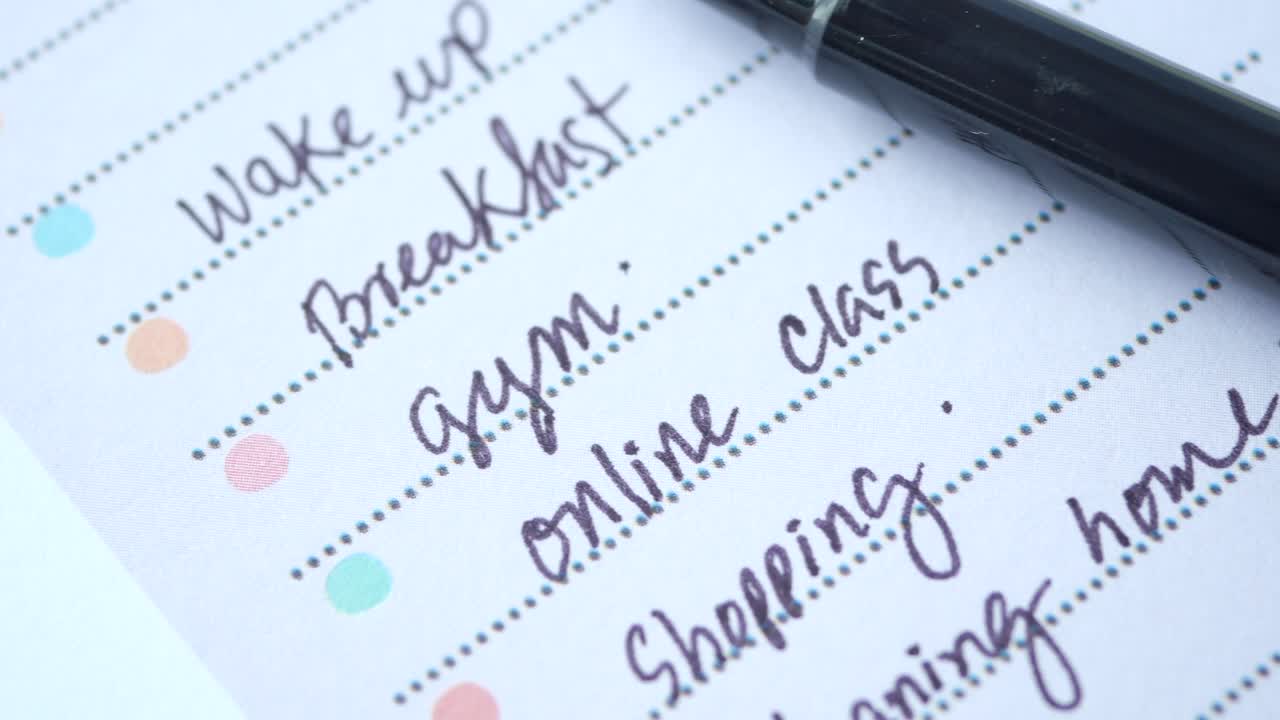 Wake up
Breakfast
Gym.
online class
Shopping.
home